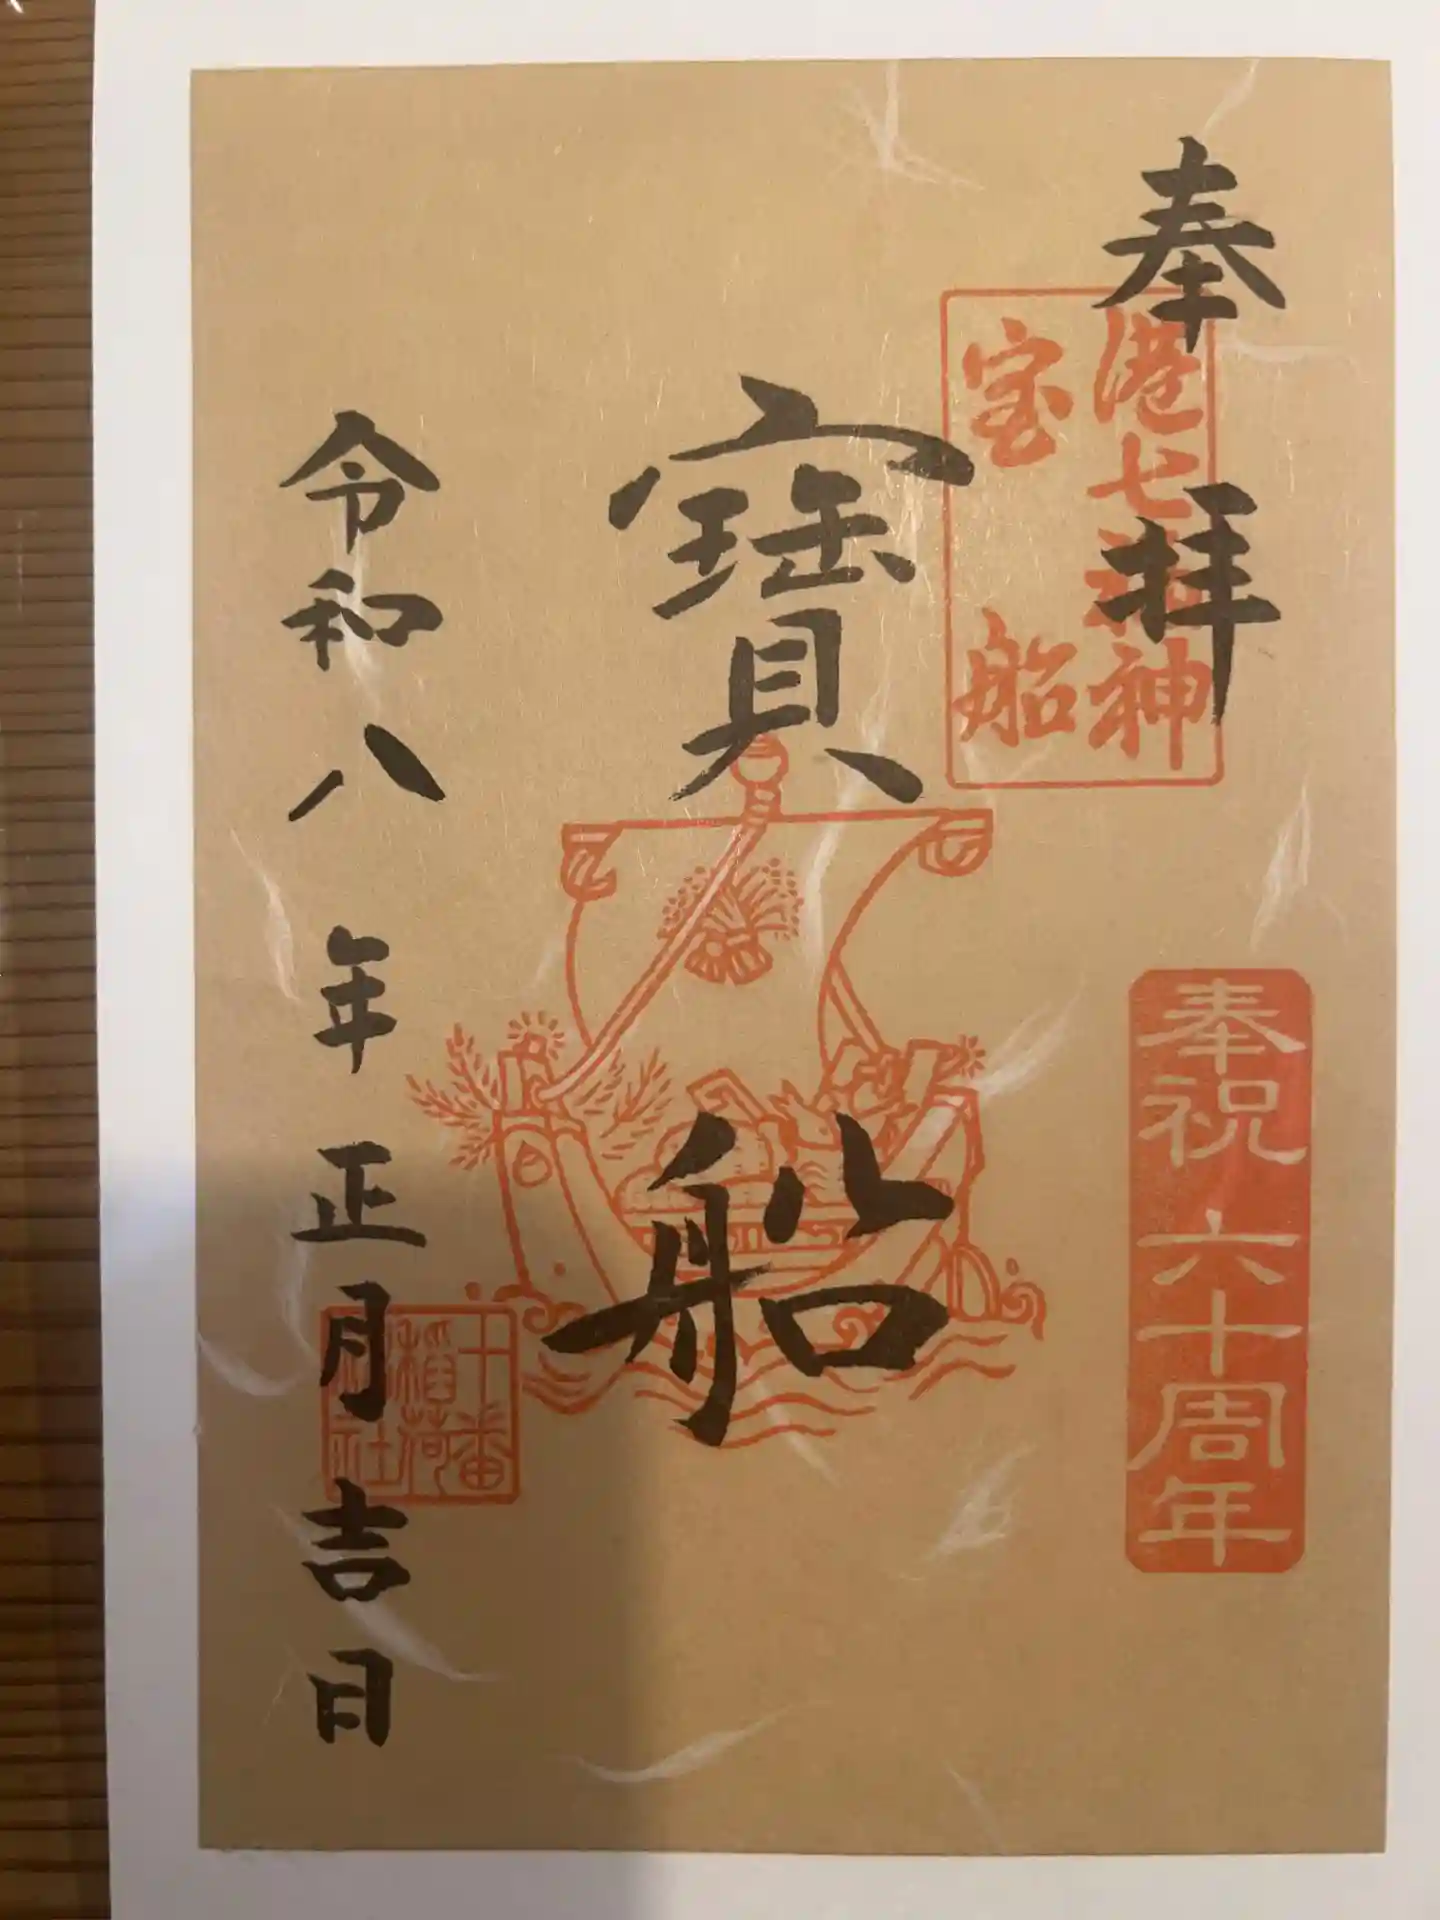 奉拝
港七福神
宝船
奉祝六十周年
寳船
令和八年正月吉日
十番
稲荷
神社